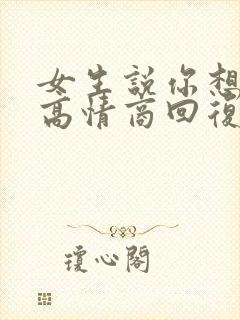 女生說你想
高情商回復
瓊心閣